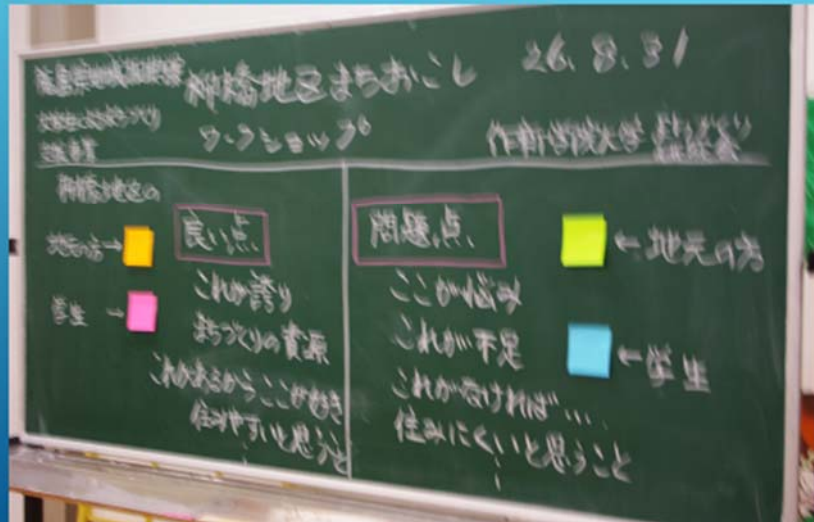 福島県地域振興課 柳橋地区まちおこし 26.8.31
ワークショップ 作新学院大学 まちづくり
柳橋地区の
地元の方→ 良い点
これが誇り
学生 → まちづくりの資源
これがあるからここが好き
住みやすいと思うこと
問題点 ←地元の方
ここが悩み
これが不足 ←学生
これがなければ…
住みにくいと思うこと